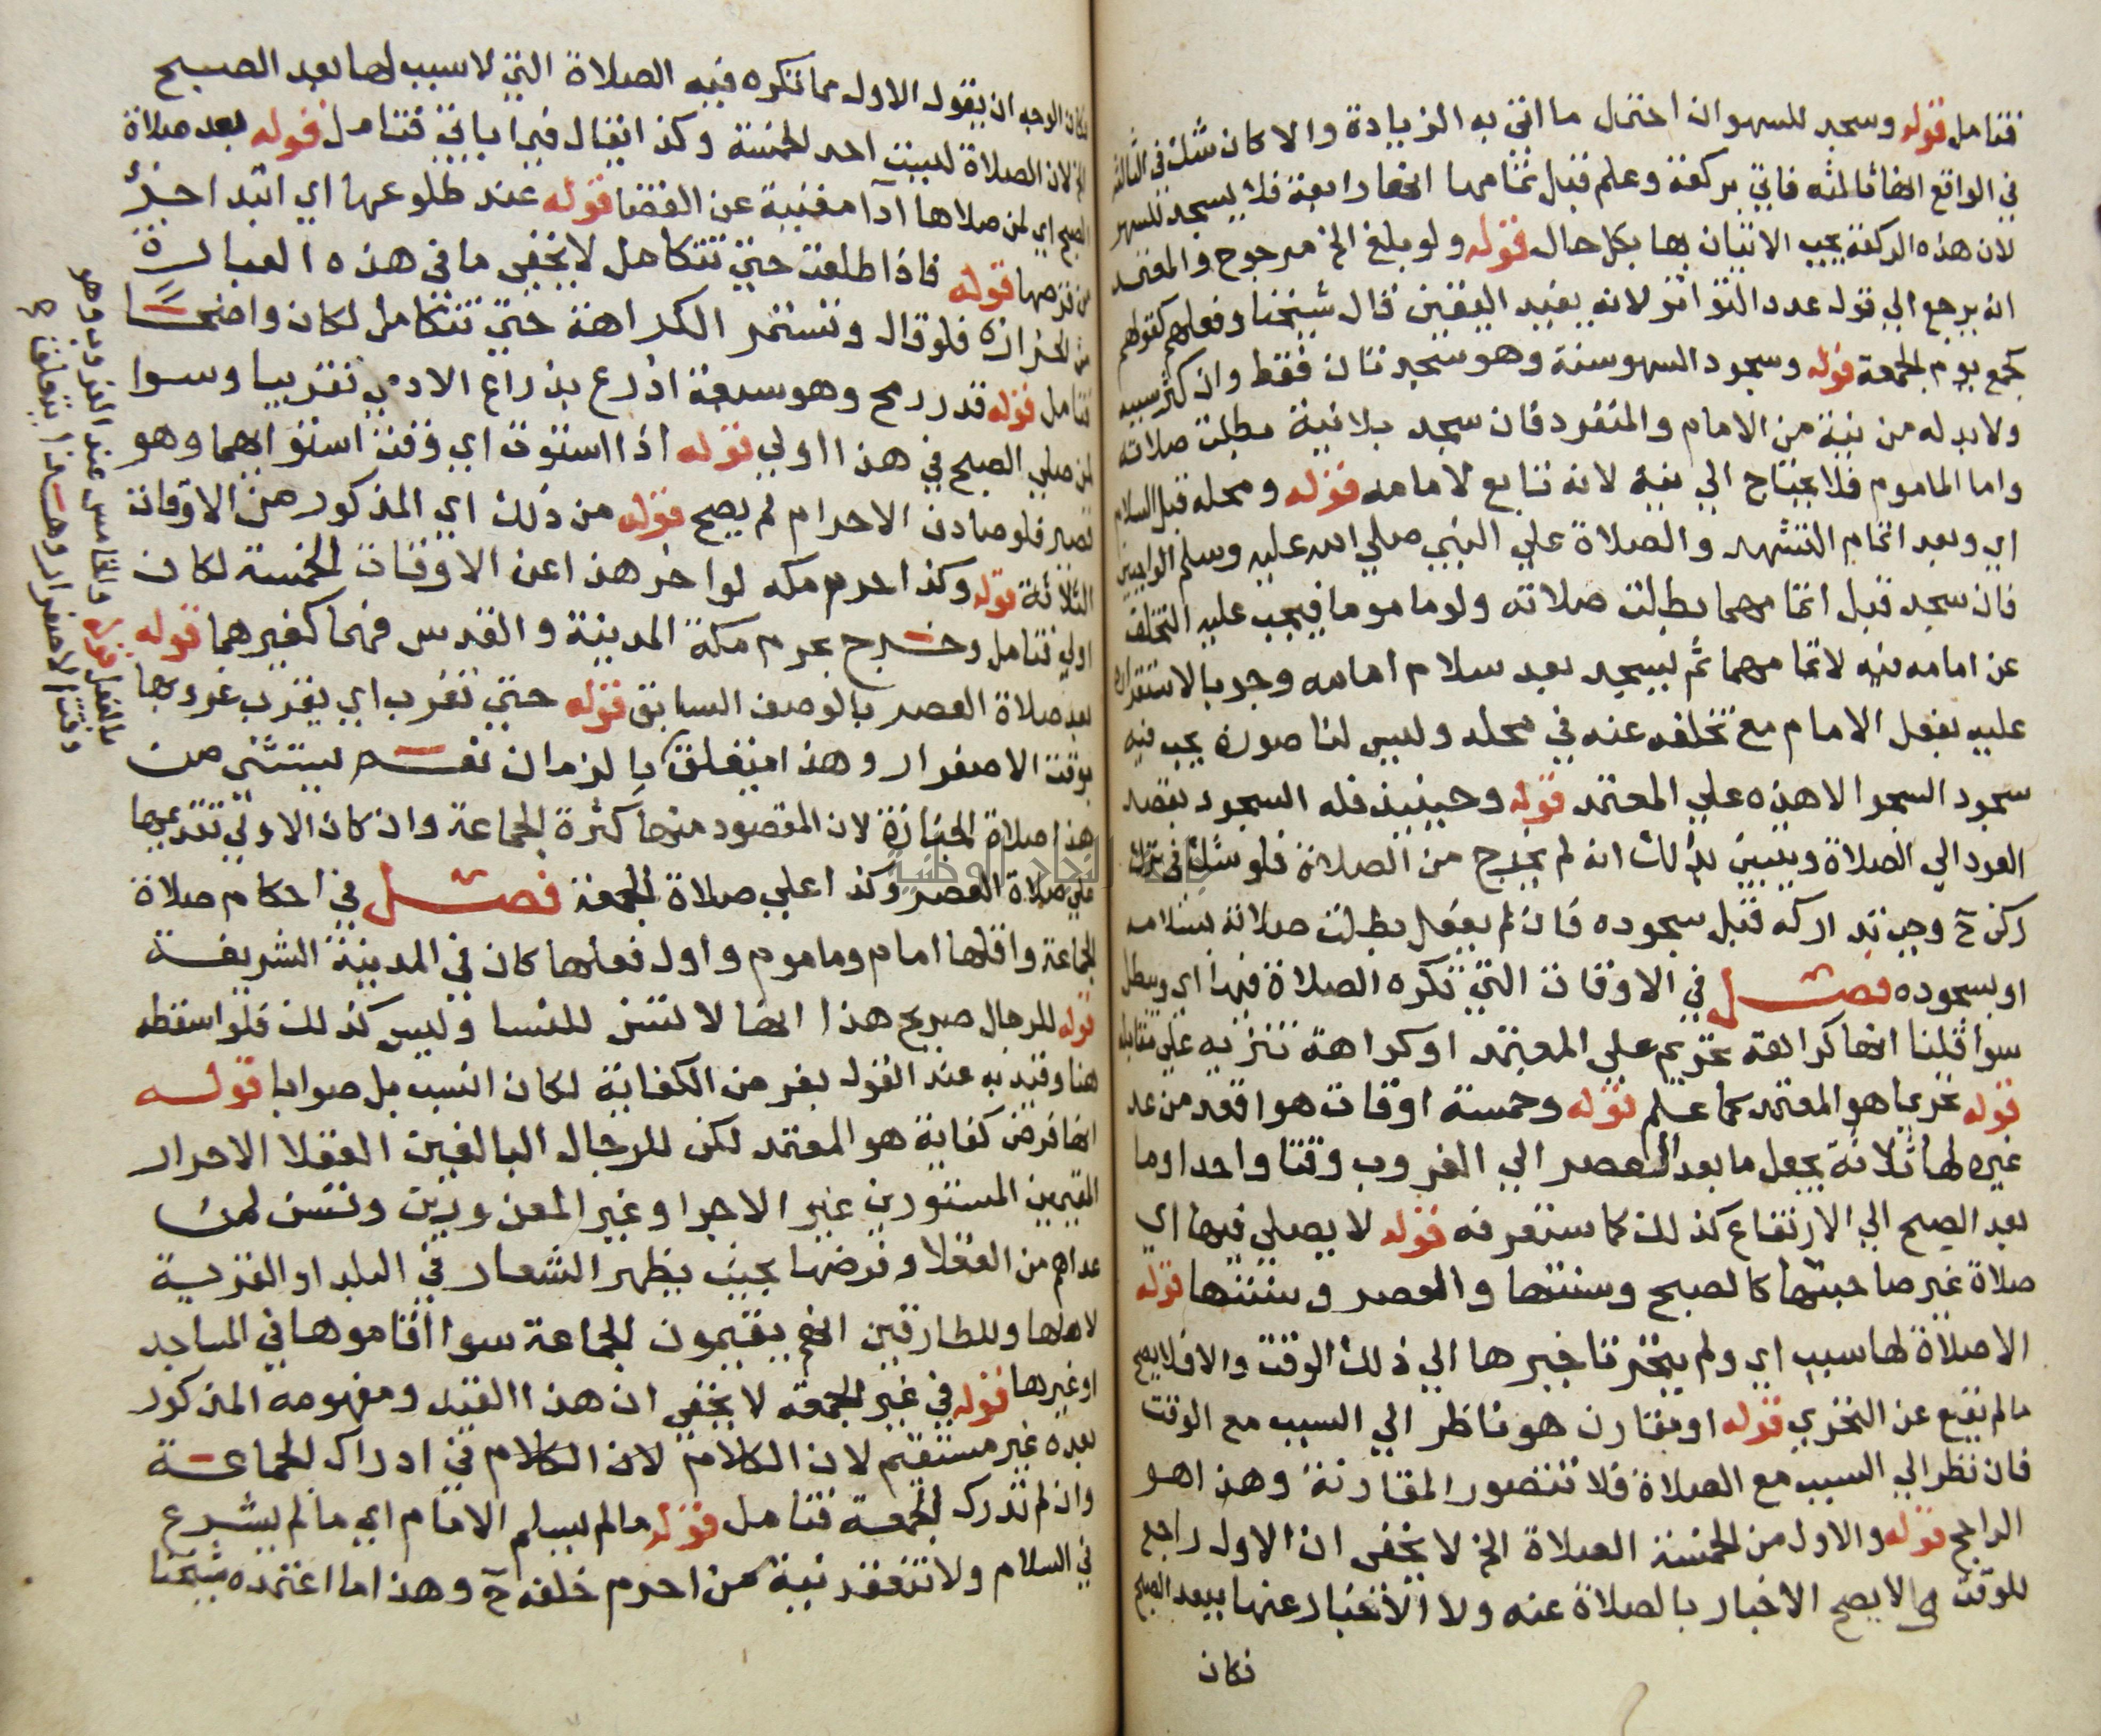 فتامل قوله وسجد للسهو ان احتمل ما اتى به الزيادة والا كان شك في الثالثة
في الواقع انها ثالثه فاتي بركعة وعلم قبل تمامها انها رابعة فلا يسجد للسهو
لان هذه الركعة يجب الاتيان بها بكل حال قوله ولو بلغ الخ مرجوح والمعتمد
انه يرجع الي قول عدد التواتر لانه يفيد اليقين قال شيخنا وفعلهم كقولهم
كجمع يوم الجمعة قوله وسجود السهو سنة وهو سجدتان فقط وان كثر سببه
ولا بد له من نية من الامام والمنفرد فان سجد بلا نية بطلت صلاته
واما الماموم فلا يحتاج الي نية لانه تابع لامامه قوله ومحله قبل السلام
اي وبعد اتمام التشهد والصلاة علي النبي صلي الله عليه وسلم الواجبين
فان سجد قبل اتمامهما بطلت صلاته ولو ماموما فيجب عليه التخلف
عن امامه فيه لاتمامهما ثم يسجد بعد سلام امامه وجوبا لاستقراره
عليه بفعل الامام مع تخلفه عنه في محله وليس لنا صورة يجب فيه
سجود السجو الا هذه علي المعتمد قوله وحينيذ فله السجود بقصد
العود الي الصلاة ويتبين بذلك انه لم يخرج من الصلاة فلو شك في ترك
ركن ح وجب تداركه قبل سجوده فان لم يفعل بطلت صلاته بسلامه
او بسجوده فصل في الاوقات التي تكره الصلاة فيها اي وتبطل
سوا قلنا انها كراهة تحريم علي المعتمد او كراهة تنزيه علي مقابله
قوله تحريما هو المعتمد كما علم قوله وخمسة اوقات هو اقعد من عد
غيره لها ثلاثة بجعل ما بعد العصر الي الغروب وقتا واحدا وما
بعد الصبح الي الارتفاع كذلك كما ستعرفه قوله لا يصلي فيها اي
صلاة غير صاحبتها كالصبح وسنتها والعصر وسنتها قوله
الا صلاة لها سبب اي ولم يتحر تاخيرها الي ذلك الوقت والا فلا يصح
مالم تقع عن التحري قوله او مقارن هو ناظر الي السبب مع الوقت
فان نظر الي السبب مع الصلاة فلا تتصور المقارنة وهذا هو
الراجح قوله والاول من الخمسة الصلاة الخ لا يخفى ان الاول راجع
للوقت ولا يصح الاخبار بالصلاة عنه ولا الاخبار عنها ببعد الصبح
فكان
فكان الوجه ان يقول الاول مما تكره فيه الصلاة التي لا سبب لها بعد الصبح
الخ لان الصلاة ليست احد الخمسة وكذا يقال فيما ياتي فتامل قوله بعد صلاة
الصبح اي لمن صلاها ادآ مغنية عن القضا قوله عند طلوعها اي ابتد اجزء
من قرصها قوله فاذا طلعت حتى تتكامل لا يخفى ما في هذه العبارة
من الحزازة فلو قال وتستمر الكراهة حتى تتكامل لكان واضحا
فتامل قوله قدر رمح وهو سبعة اذرع بذراع الادمي تقريبا وسوا
لمن صلي الصبح في هذا اولي قوله اذا استوت اي وقت استوايها وهو
قصير فلو صادف الاحرام لم يصح قوله من ذلك اي المذكور من الاوقات
الثلاثة قوله وكذا حرم مكه لو اخر هذا عن الاوقات الخمسة لكان
اولي فتامل وخرج بحرم مكة المدينة والقدس فهما كغيرهما قوله
بعد صلاة العصر بالوصف السابق قوله حتى تغرب اي يقرب غروبها
بوقت الاصفرار وهذا متعلق بالزمان نفسه يستثني من
هذا صلاة الجنازة لان المقصود منها كثرة الجماعة وان كان الاولي تقديمها
علي صلاة العصر وكذا علي صلاة الجمعة فصل في احكام صلاة
الجماعة واقلها امام وماموم واول فعلها كان في المدينة الشريفة
قوله للرجال صريح هذا انها لا تسن للنسا وليس كذلك فلو اسقطه
هنا وقيد به عند القول بفرض الكفاية لكان انسب بل صوابا قوله
انها فرض كفاية هو المعتمد لكن للرجال البالغين العقلا الاحرار
المقيمين المستورين غير الاجرا وغير المعذورين وتسن لمن
عداهم من العقلا وفرضها بحيث يظهر الشعار في البلد او القرية
لاهلها وللطارقين انهم يقيمون الجماعة سوا اقاموها في المساجد
او غيرها قوله في غير الجمعة لا يخفي ان هذا القيد ومفهومه المذكور
بعده غير مستقيم لان الكلام لان الكلام في ادراك الجماعة
وان لم تدرك الجمعة فتامل قوله مالم يسلم الامام اي مالم يشرع
في السلام ولا تنعقد نية من احرم خلفه ح وهذا ما اعتمده شيخنا
بالفعل قوله والخامس عند الغروب وهو
وقت الاصفرار وهذا يتعلق